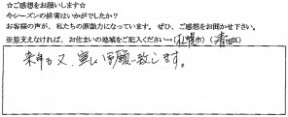 ☆ご感想をお願いします☆
今シーズンの排雪はいかがでしたか?
お客様の声が、私たちの原動力になっています。ぜひ、ご感想をお聞かせ下さい。
※差支えなければ、お住まいの地域をご記入ください→(札幌市)(清田区)
来年も又、宜しくお願い致します。